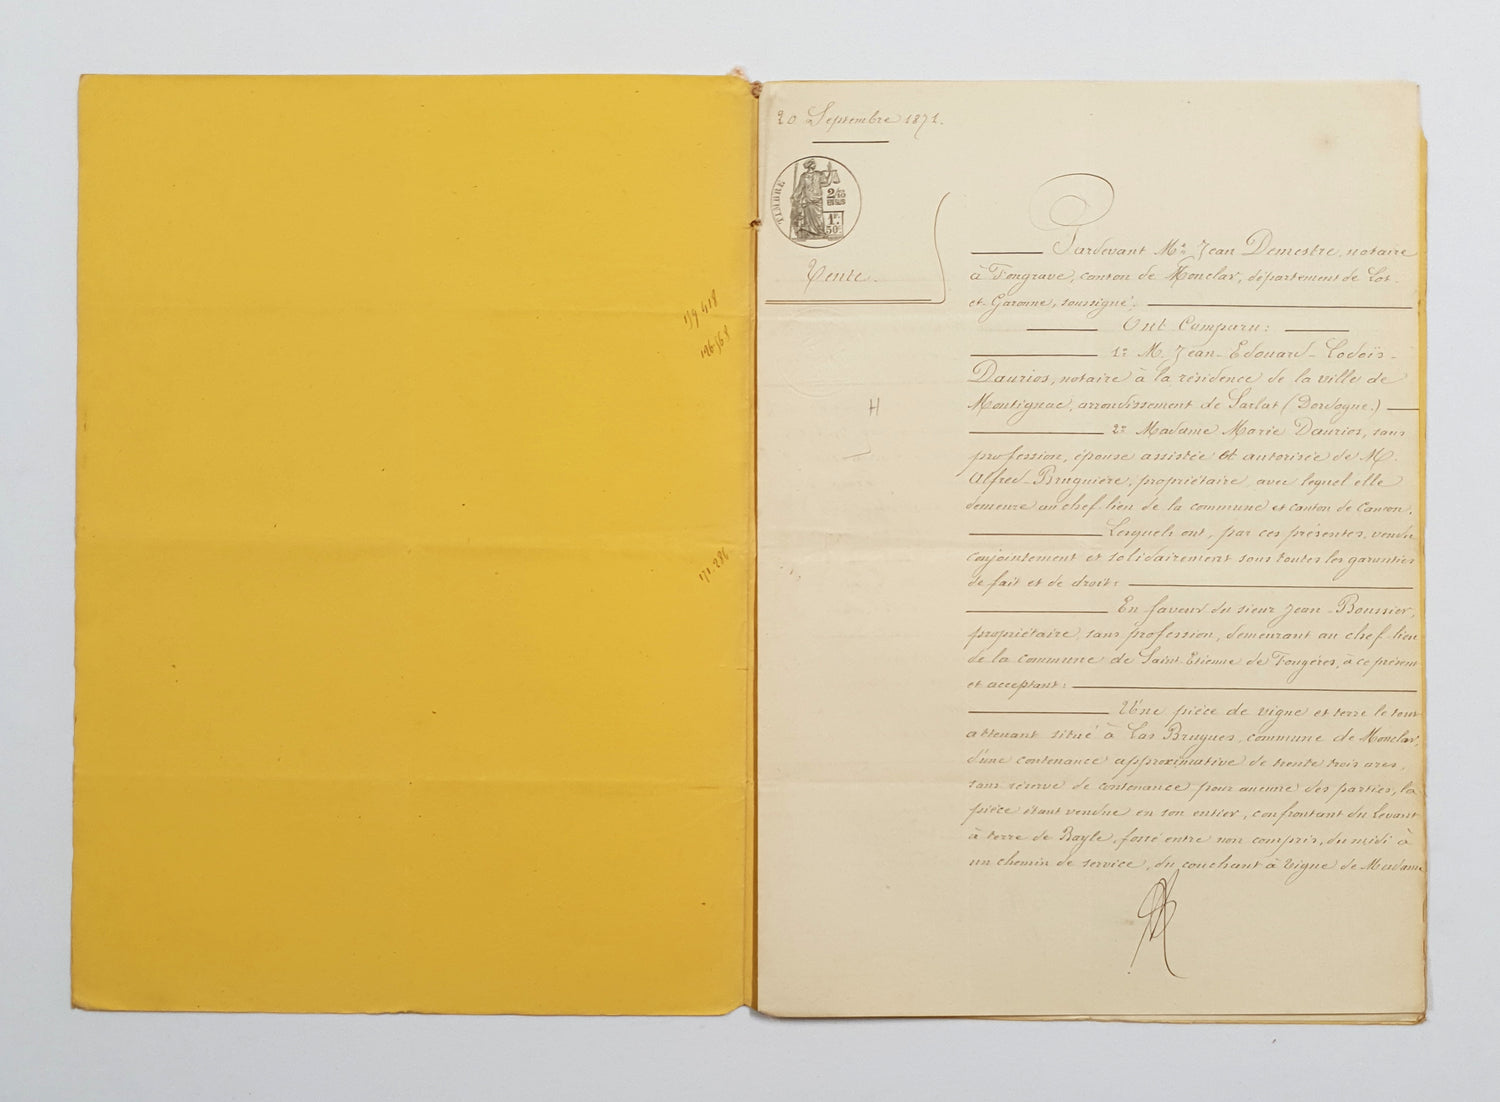 179 418
171-286
20 Septembre 1871.
TIMBRE
2/10
EN SUS
1F.
50C.
Vente.
H
Pardevant Me. Jean Demestre, notaire
à Fongrave, canton de Monclar, département de Lot-
et-Garonne, soussigné;
Ont Comparu:
1o. M. Jean-Edouard-Lodoïs-
Daurios, notaire à la résidence de la ville de
Montignac, arrondissement de Sarlat (Dordogne.)
2o. Madame Marie Daurios, sans
profession, épouse assistée et autorisée de M.
Alfred-Bruguière, propriétaire, avec lequel elle
demeure au chef-lieu de la commune et canton de Cancon.
Lesquels ont, par ces présentes, vendu
conjointement et solidairement sous toutes les garanties
de fait et de droit:
En faveur du sieur Jean-Boussier,
propriétaire, sans profession, demeurant au chef-lieu
de la commune de Saint-Etienne de Fougères, à ce présent
et acceptant:
Une pièce de vigne et terre le tout
attenant situé à Las Brugues, commune de Monclar,
d'une contenance approximative de trente trois ares,
sans réserve de contenance pour aucune des parties, la
pièce étant vendue en son entier, confrontant du levant
à terre de Bayle, fossé entre non compris, du midi à
un chemin de service, du couchant à vigne de Madame